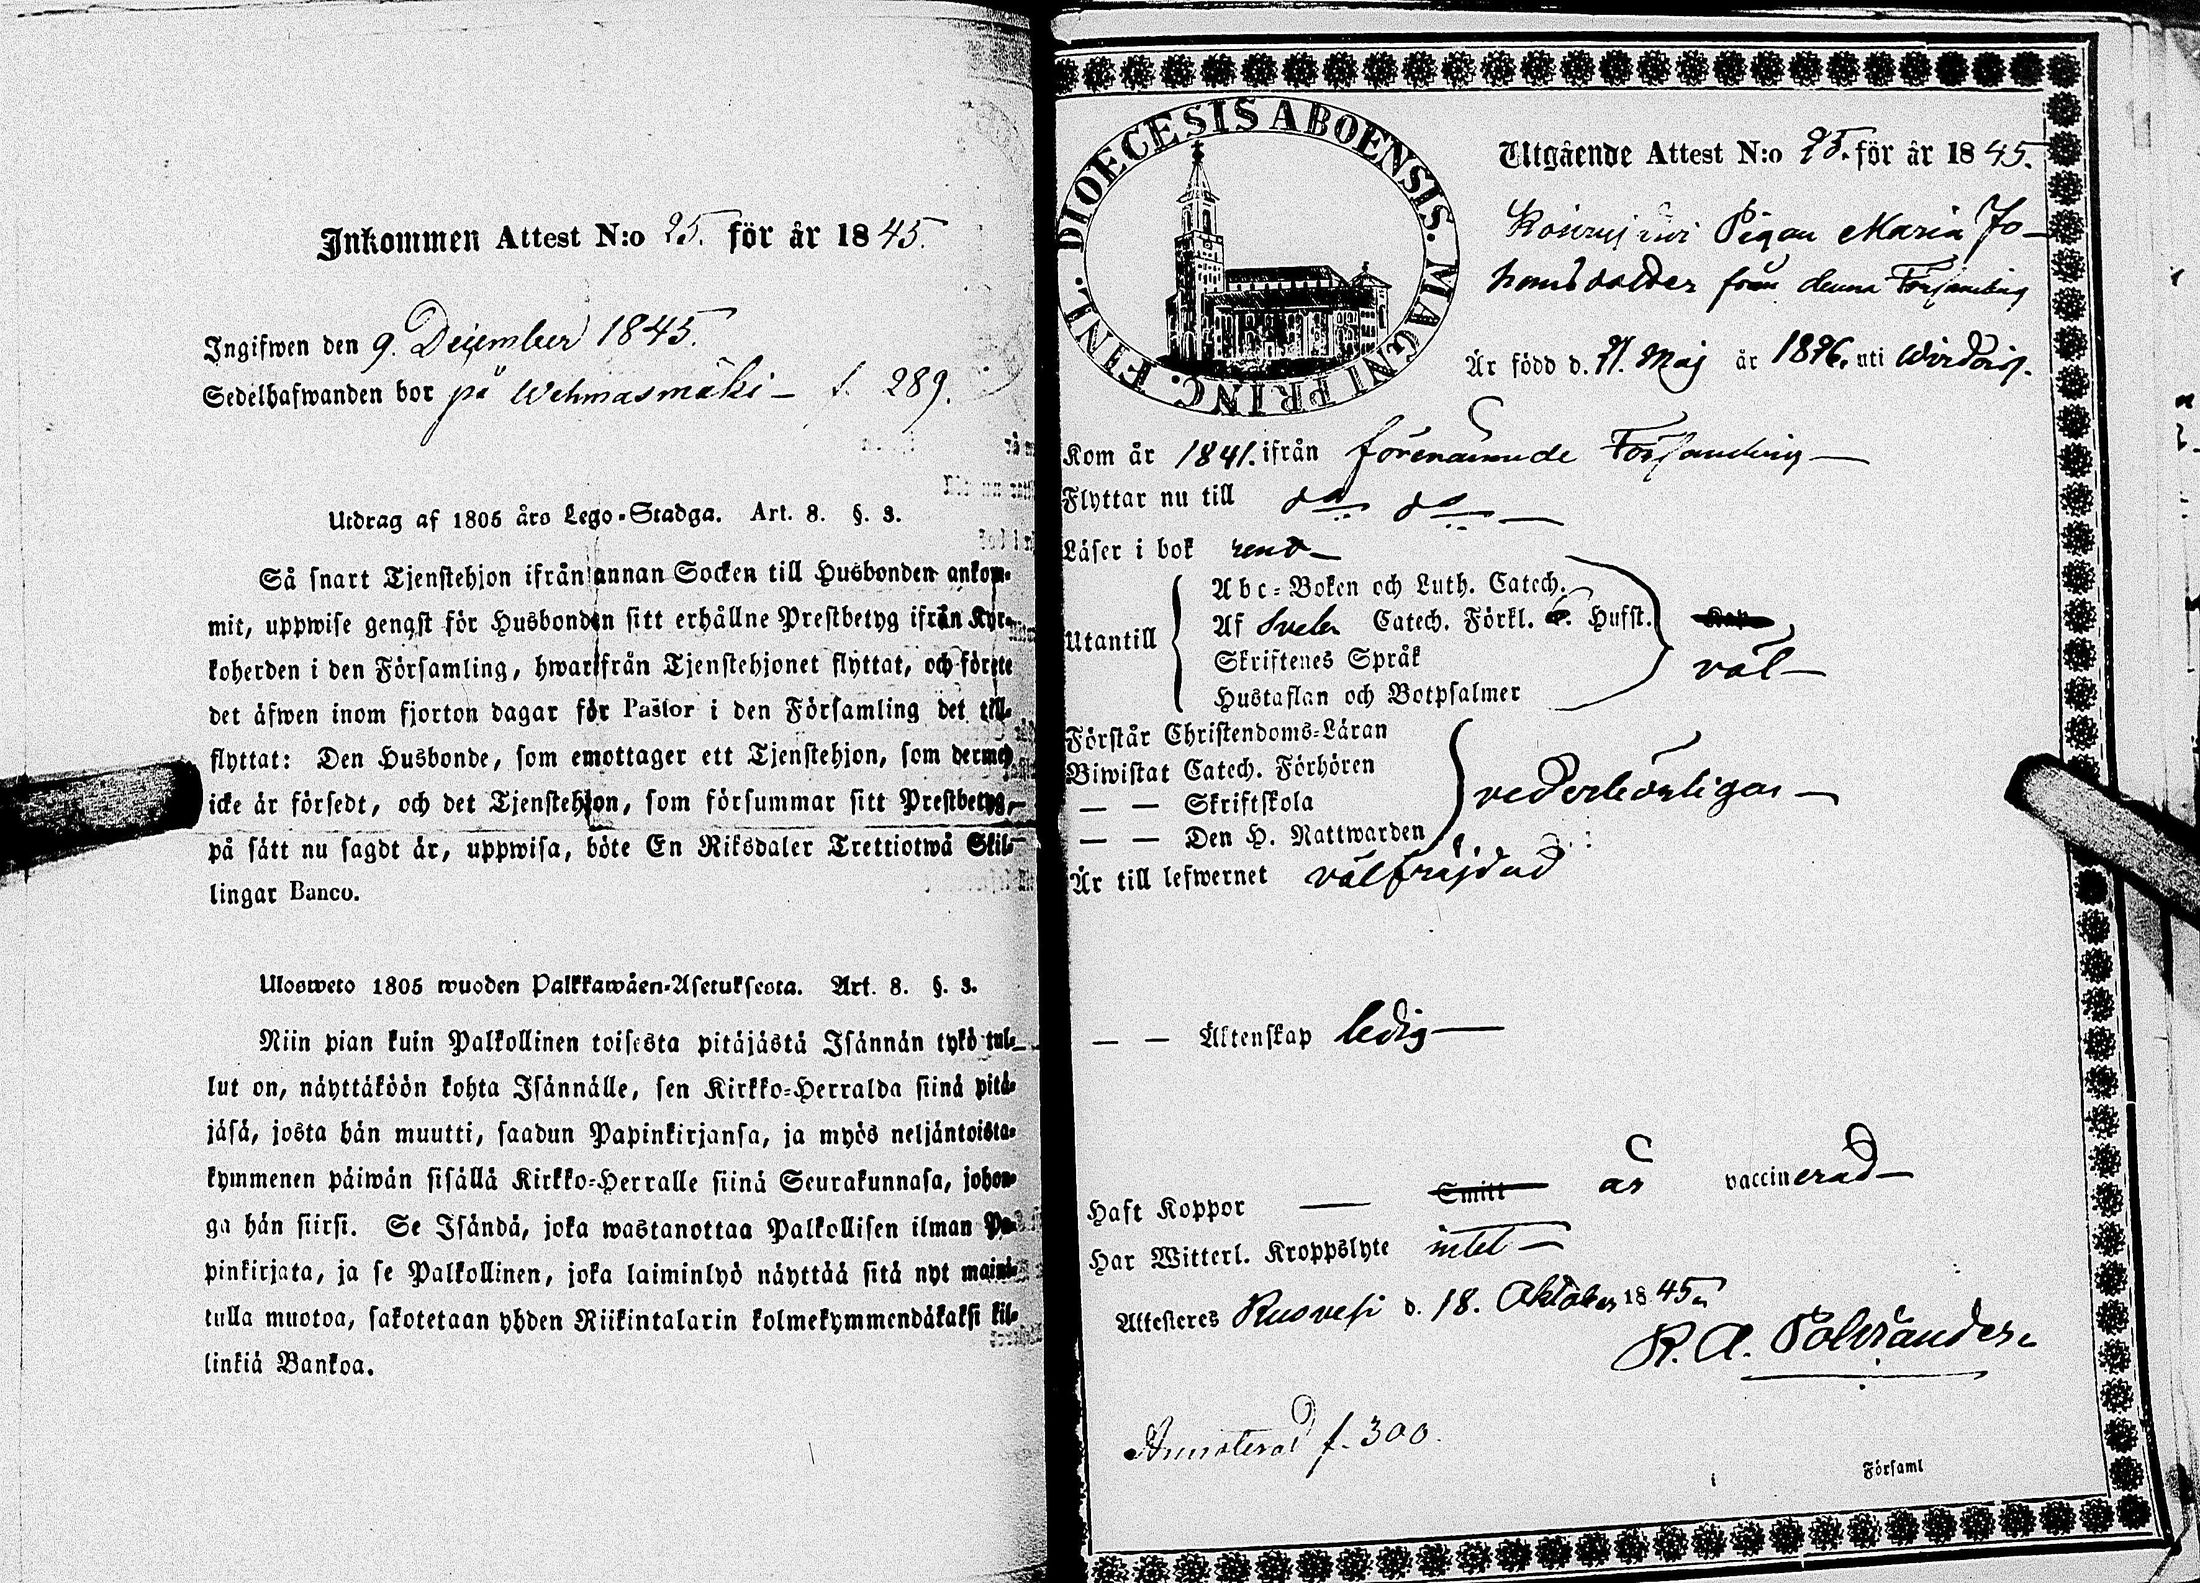 Inkommen Attest N:o 25. för år 1845.
Ingifwen den 9. December 1845.
Sedelhafwanden bor på Wehmasmäki – f. 289.
Utdrag af 1805 års Lego-Stadga. Art. 8. §. 3.
Så snart Tjenstehjon ifrån annan Socken till Husbonden ankom-
mit, uppwise gengst för Husbonden sitt erhållne Prestbetyg ifrån Kyr-
koherden i den Församling, hwarifrån Tjenstehjonet flyttat, och förete
det äfwen inom fjorton dagar för Pastor i den Församling det till-
flyttat: Den Husbonde, som emottager ett Tjenstehjon, som dermed
icke är försedt, och det Tjenstehjon, som försummar sitt Prestbetyg,
på sätt nu sagdt är, uppwisa, böte En Riksdaler Trettiotwå Skil-
lingar Banco.
Ulosweto 1805 wuoden Palkkawäen-Asetuksesta. Art. 8. §. 3.
Niin pian kuin Palkollinen toisesta pitäjästä Isännän tykö tul-
lut on, näyttäköön kohta Isännälle, sen Kirkko-Herralda siinä pitä-
jäsä, josta hän muutti, saadun Papinkirjansa, ja myös neljäntoista-
kymmenen päiwän sisällä Kirkko-Herralle siinä Seurakunnasa, johon-
ga hän siirsi. Se Isändä, joka wastanottaa Palkollisen ilman Pa-
pinkirjata, ja se Palkollinen, joka laiminlyö näyttää sitä nyt maini-
tulla muotoa, sakotetaan yhden Riikintalarin kolmekymmendäkaksi kil-
linkiä Bankoa.
DIOECESIS ABOENSIS. MAGNI PRINC. FINL.
Utgående Attest N:o 25. för år 1845.
Pigan Maria Jo-
hansdotter från denna Församling
Är född d. Maj år 1826. uti
Kom år 1841. ifrån förenämnde Församling –
Flyttar nu till do do –
Läser i bok rent –
Abc-Boken och Luth. Catech.
Utantill Af Svebe Catech. Förkl. Hufst.
Skriftenes Språk väl –
Hustaflan och Botpsalmer
Förstår Christendoms-Läran
Biwistat Catech. Förhören
— — Skriftskola vederbörligen –
— — Den H. Nattwarden
Är till lefwernet välfräjdad
— — Äktenskap ledig –
Haft Koppor — Smitt är vaccinerad –
Har Witterl. Kroppslyte intet –
Attesteres Ruovesi d. 18. Oktober 1845.
Annoterad f. 300.
Församl